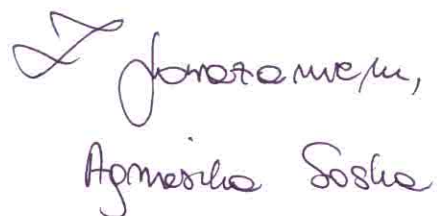 Z poważaniem,
Agnieszka Soska